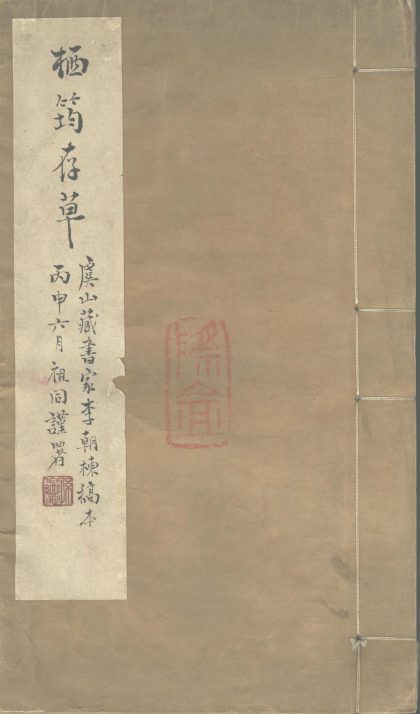 栖筠存草
虞山藏書家李朝棟稿本
丙申六月祖同謹署